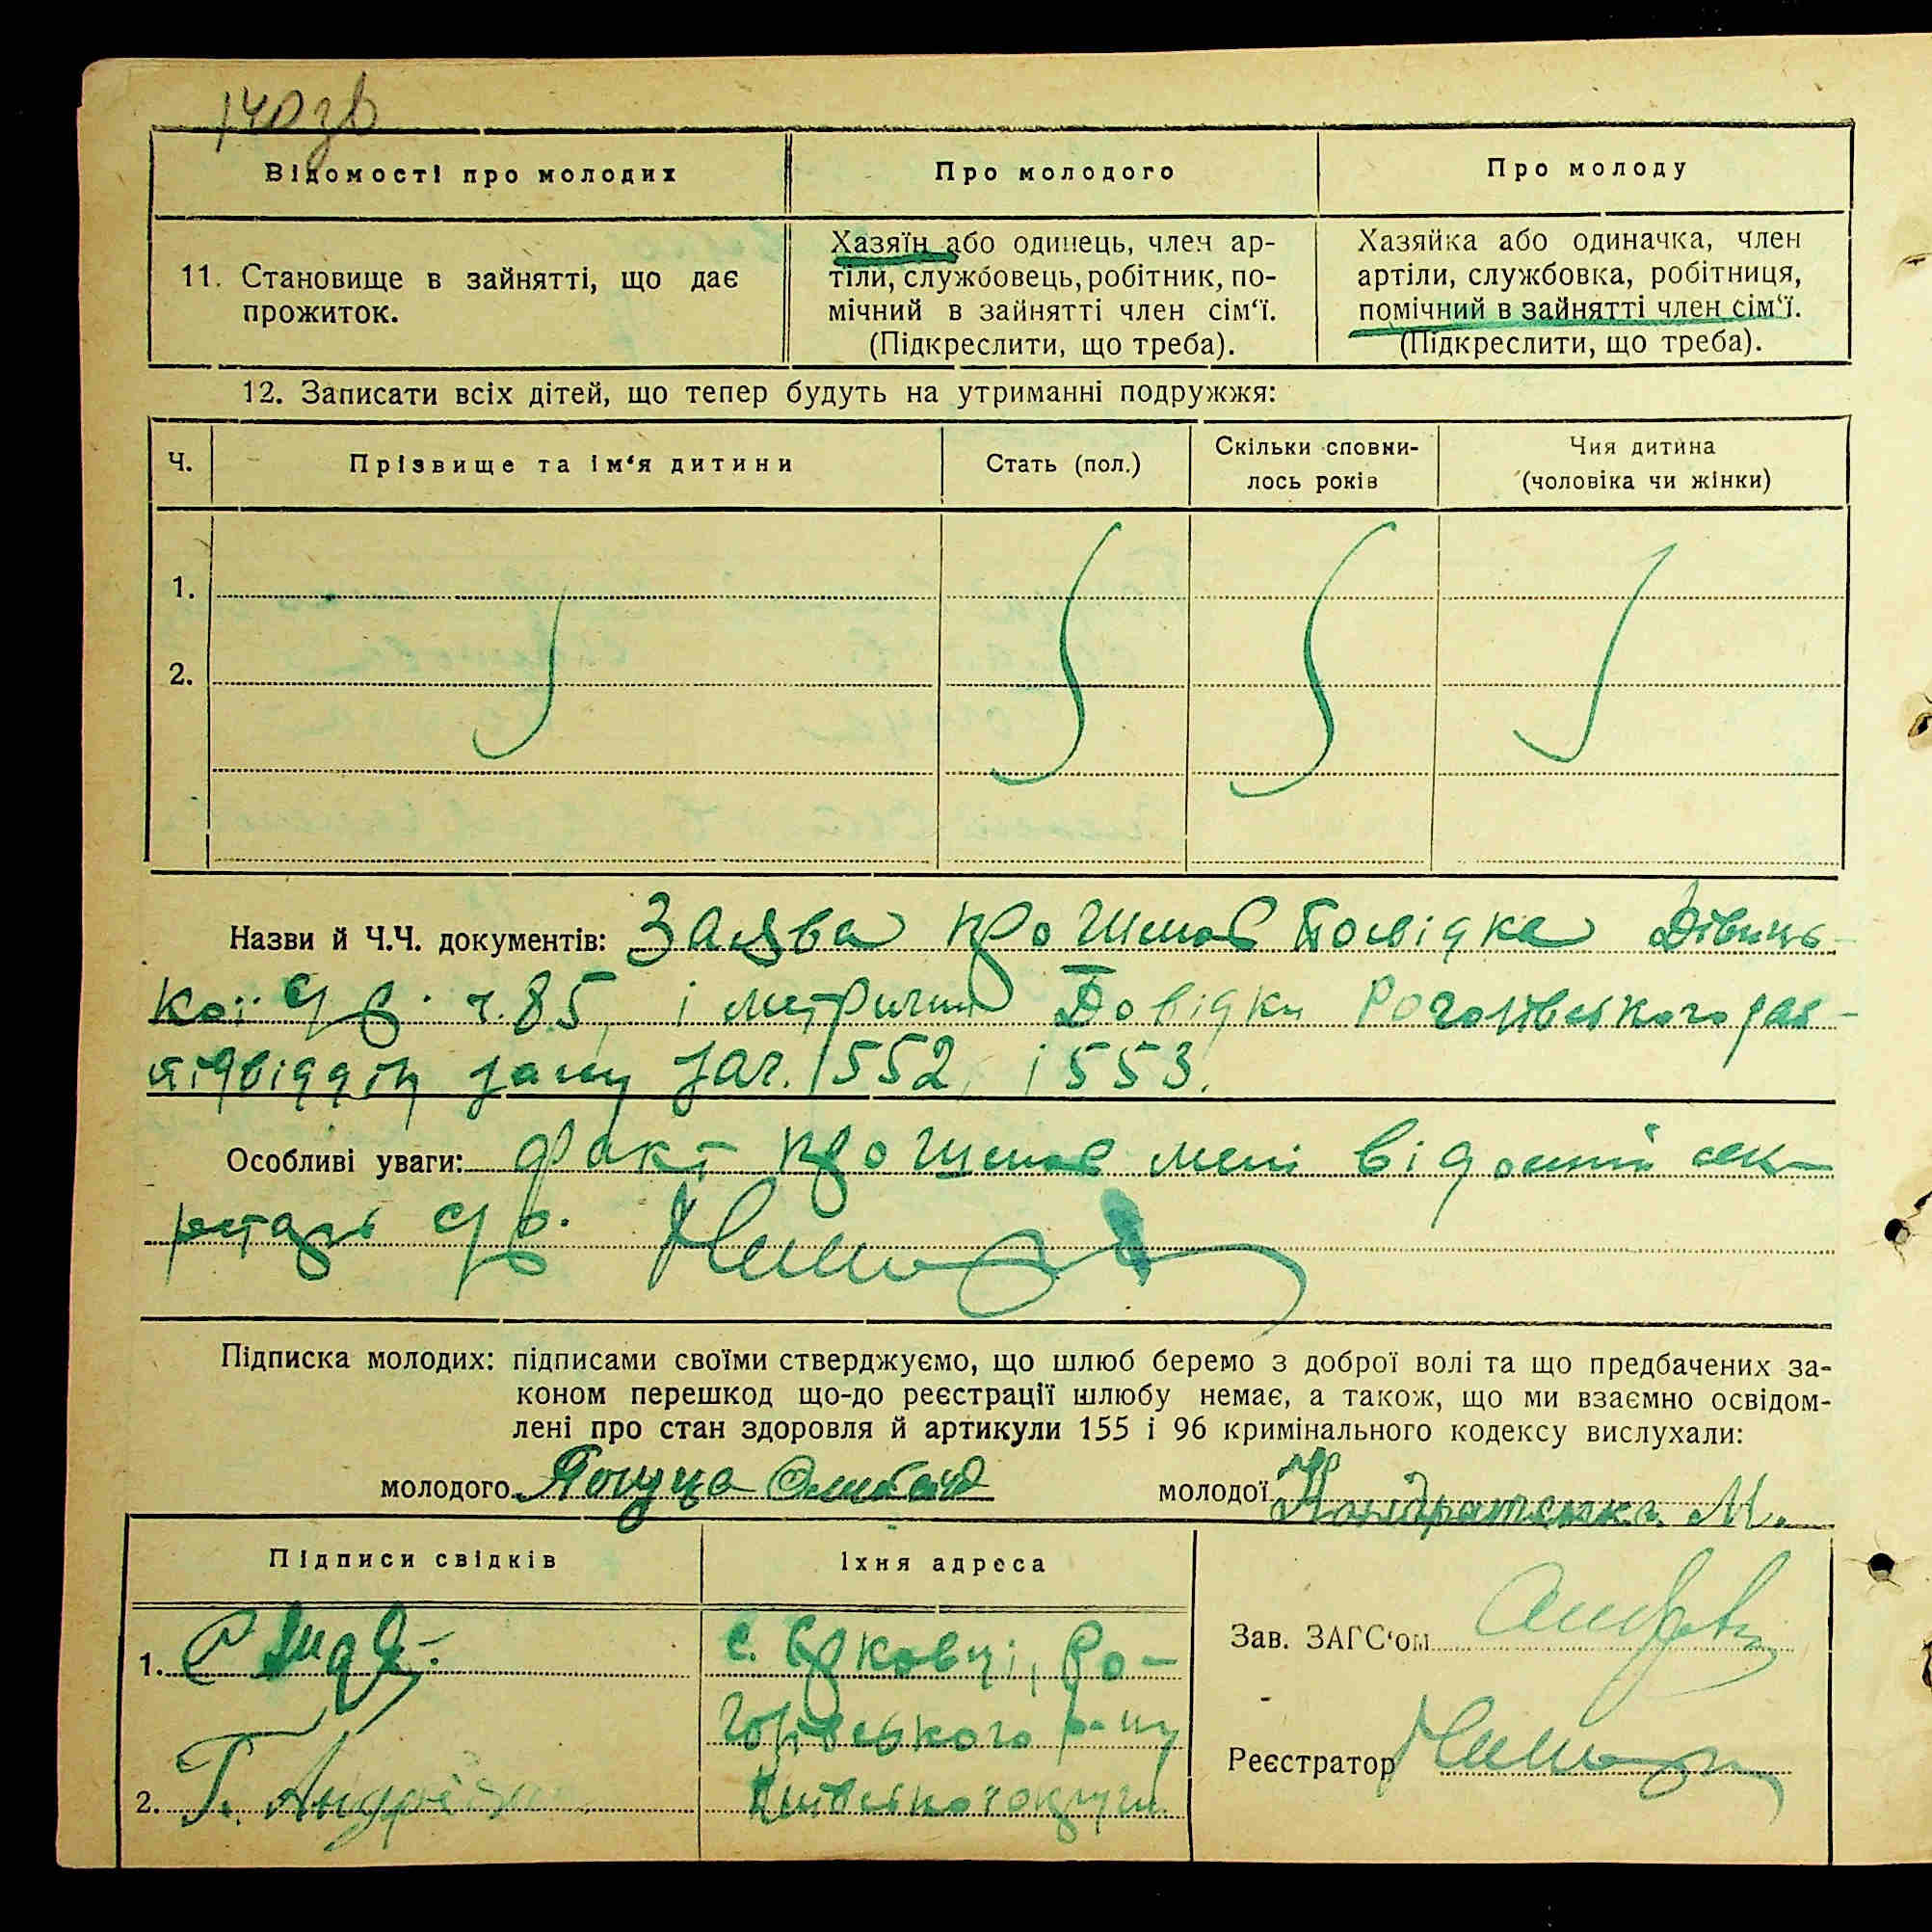 140 зв
Відомості про молодих
Про молодого
Про молоду
11. Становище в зайнятті, що дає
прожиток.
Хазяїн або одинець, член ар-
тіли, службовець, робітник, по-
мічний в зайнятті член сім‘ї.
(Підкреслити, що треба).
Хазяйка або одиначка, член
артіли, службовка, робітниця,
помічний в зайнятті член сім‘ї.
(Підкреслити, що треба).
12. Записати всіх дітей, що тепер будуть на утриманні подружжя:
Ч.
Прізвище та ім‘я дитини
Стать (пол.)
Скільки сповни-
лось років
Чия дитина
(чоловіка чи жінки)
1.
2.
Назви й Ч.Ч. документів: Заява про шлюб Посвідка Дівиць-
кої с/р. ч. 85, і метричні Довідки Рогозівського рай-
підвідділу загсу за ч. 1552, і 553.
Особливі уваги: факт про шлюб мені відомий сек-
ретарь с/р.
Підписка молодих: підписами своїми стверджуємо, що шлюб беремо з доброї волі та що предбачених за-
коном перешкод що-до реєстрації шлюбу немає, а також, що ми взаємно освідом-
лені про стан здоровля й артикули 155 і 96 кримінального кодексу вислухали:
молодого
молодої Кондратенко М.
Підписи свідків
Їхня адреса
1.
с. Єрковці, Ро-
гозівського р-ну
2. Г.
Київської округи
Зав. ЗАГС‘ом
Реєстратор